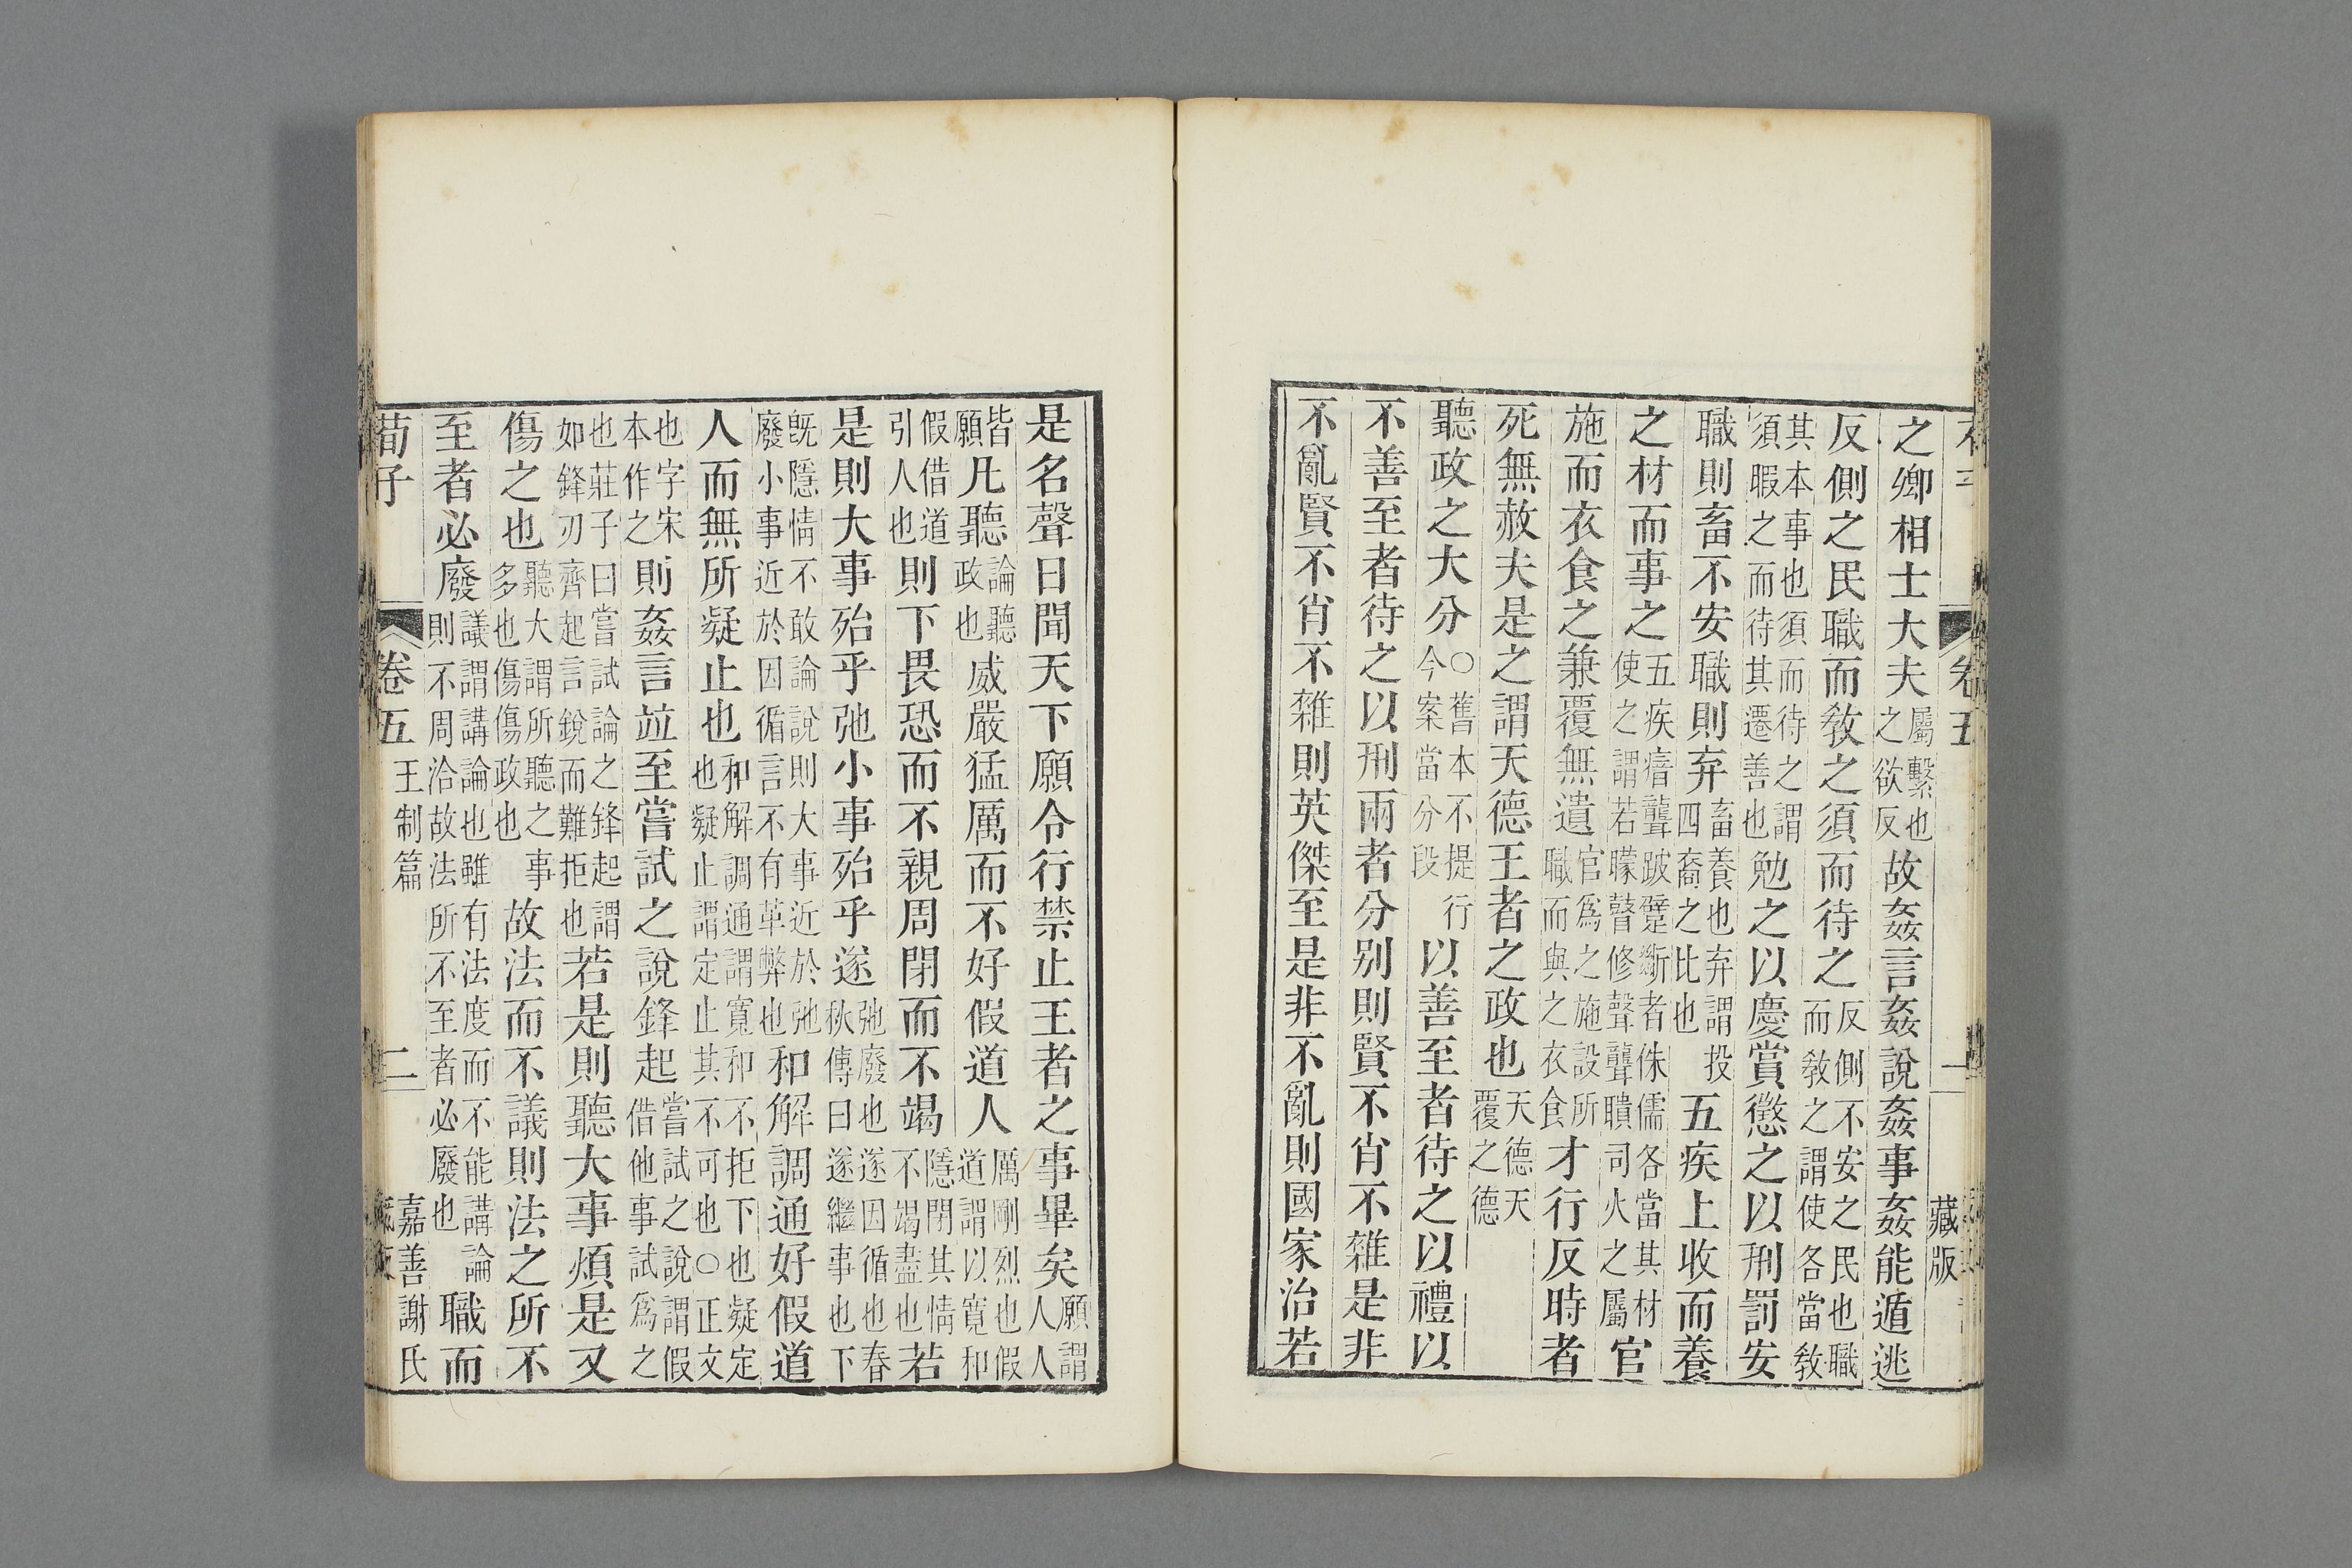 卷五 一 藏版
之卿相士大夫屬繫也之欲反故姦言姦說姦事姦能遁逃
反側之民職而敎之須而待之反側不安之民也職而敎之謂使各當敎
其本事也須而待之謂須暇之而待其遷善也勉之以慶賞懲之以刑罰安
職則畜不安職則弃畜養也弃謂投四裔之比也五疾上收而養
之材而事之五疾瘖聾跛躄斷者侏儒各當其材使之謂若矇瞽修聲聾聵司火之屬官
施而衣食之兼覆無遺官爲之施設所職而與之衣食才行反時者
死無赦夫是之謂天德王者之政也天德天覆之德
聽政之大分○舊本不提行今案當分段以善至者待之以禮以
不善至者待之以刑兩者分别則賢不肖不雜是非
不亂賢不肖不雜則英傑至是非不亂則國家治若
是名聲日聞天下願令行禁止王者之事畢矣願謂人人
皆願凡聽論聽政也威嚴猛厲而不好假道人厲剛烈也假道謂以寬和
假借道引人也則下畏恐而不親周閉而不竭隱閉其情不竭盡也若
是則大事殆乎弛小事殆乎遂弛廢也遂因循也春秋傳曰遂繼事也下
旣隱情不敢論說則大事近於弛廢小事近於因循言不有革弊也和解調通好假道
人而無所凝止也和解調通謂寬和不拒下也凝定也凝止謂定止其不可也○正文
也字宋本作之則姦言竝至嘗試之說鋒起嘗試之說謂假借他事試爲之
也莊子曰嘗試論之鋒起謂如鋒刃齊起言銳而難拒也若是則聽大事煩是又
傷之也聽大謂所聽之事多也傷傷政也故法而不議則法之所不
至者必廢議謂講論也雖有法度而不能講論則不周洽故法所不至者必廢也職而
荀子 卷五 王制篇 二 嘉善謝氏